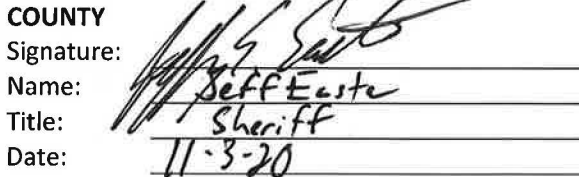 COUNTY
Signature:
Name: Jeff Easter
Title: Sheriff
Date: 11-3-20